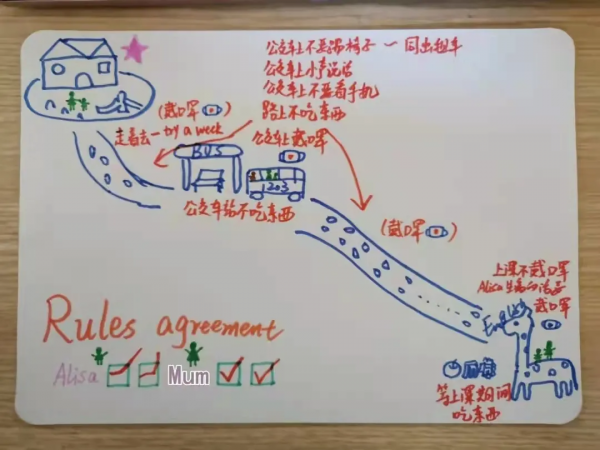 公交车上不要踢椅子 — 同出租车
公交车上小声说话
公交车上不並看手机
路上不吃东西
(戴口罩)
走着去 — try a week
公交车上戴口罩
BUS
1203
公交车站不吃东西
(戴口罩)
上课不戴口罩
Alisa生病的话要
戴口罩
English
等上课期间
吃东西
Rules agreement
Alisa
Mum